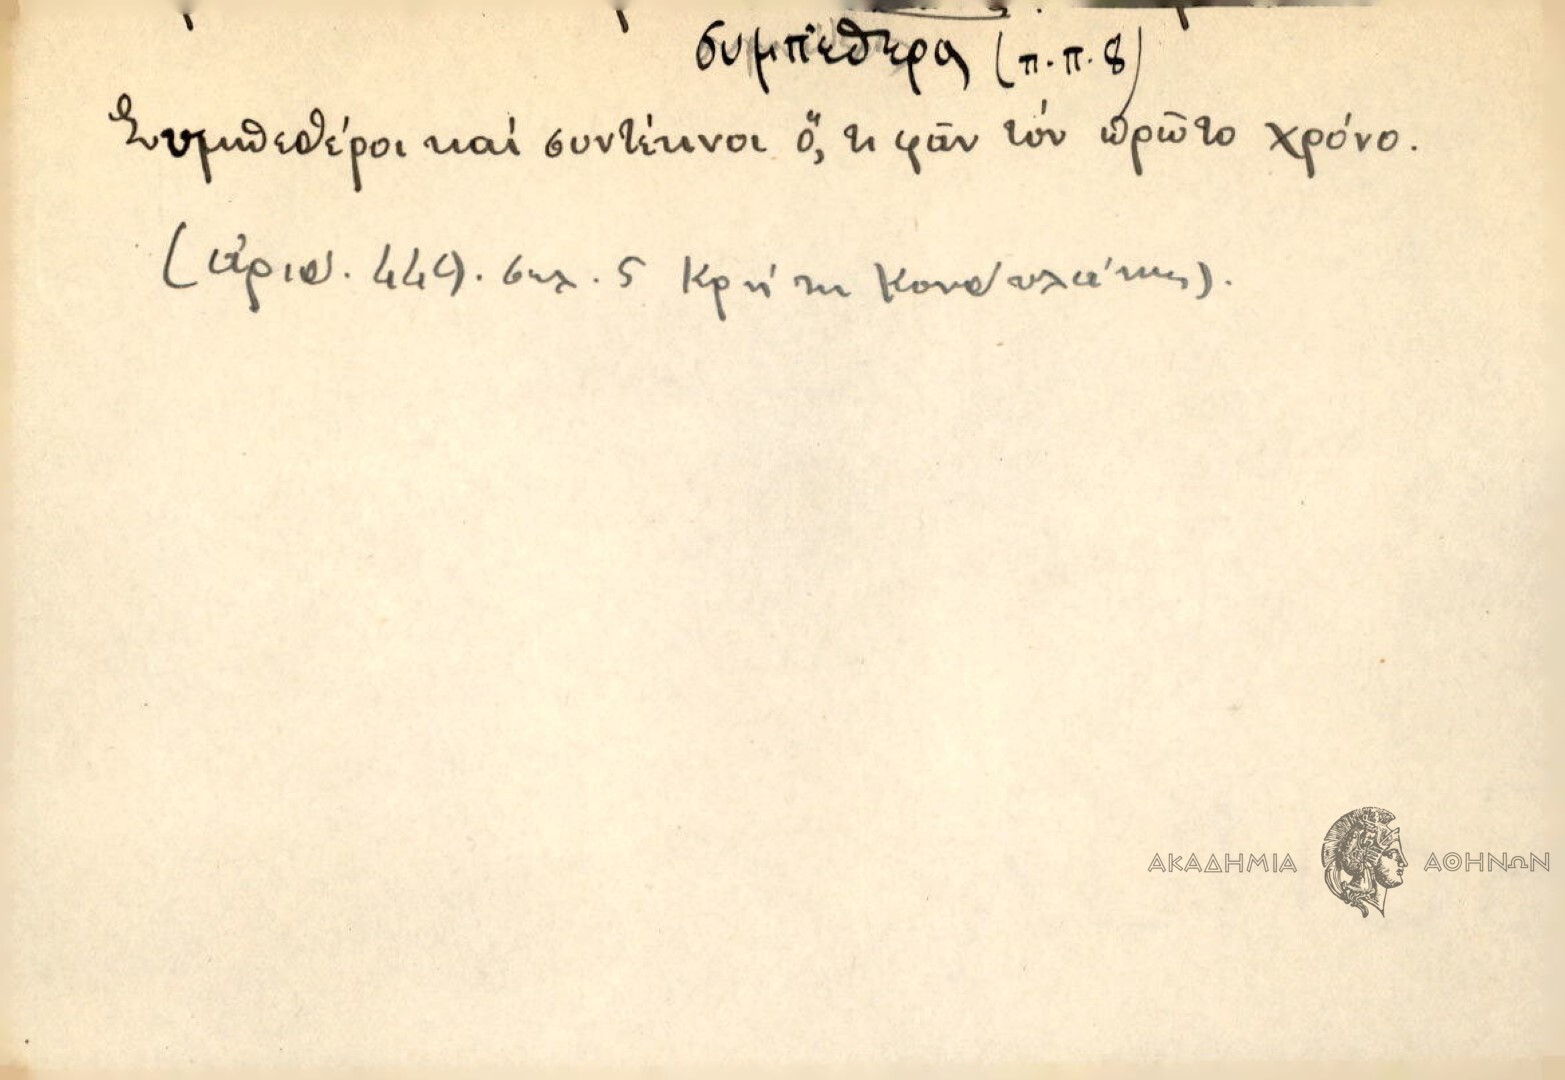 συμπεθερα (π.π.8)
Συμπεθέροι καί συντέκνοι ὅ,τι φᾶν τόν πρῶτο χρόνο.
(ἀριθ. 449. σελ. 5 Κρήτη Κονδυλάκης).
ΑΚΑΔΗΜΙΑ ΑΘΗΝΩΝ